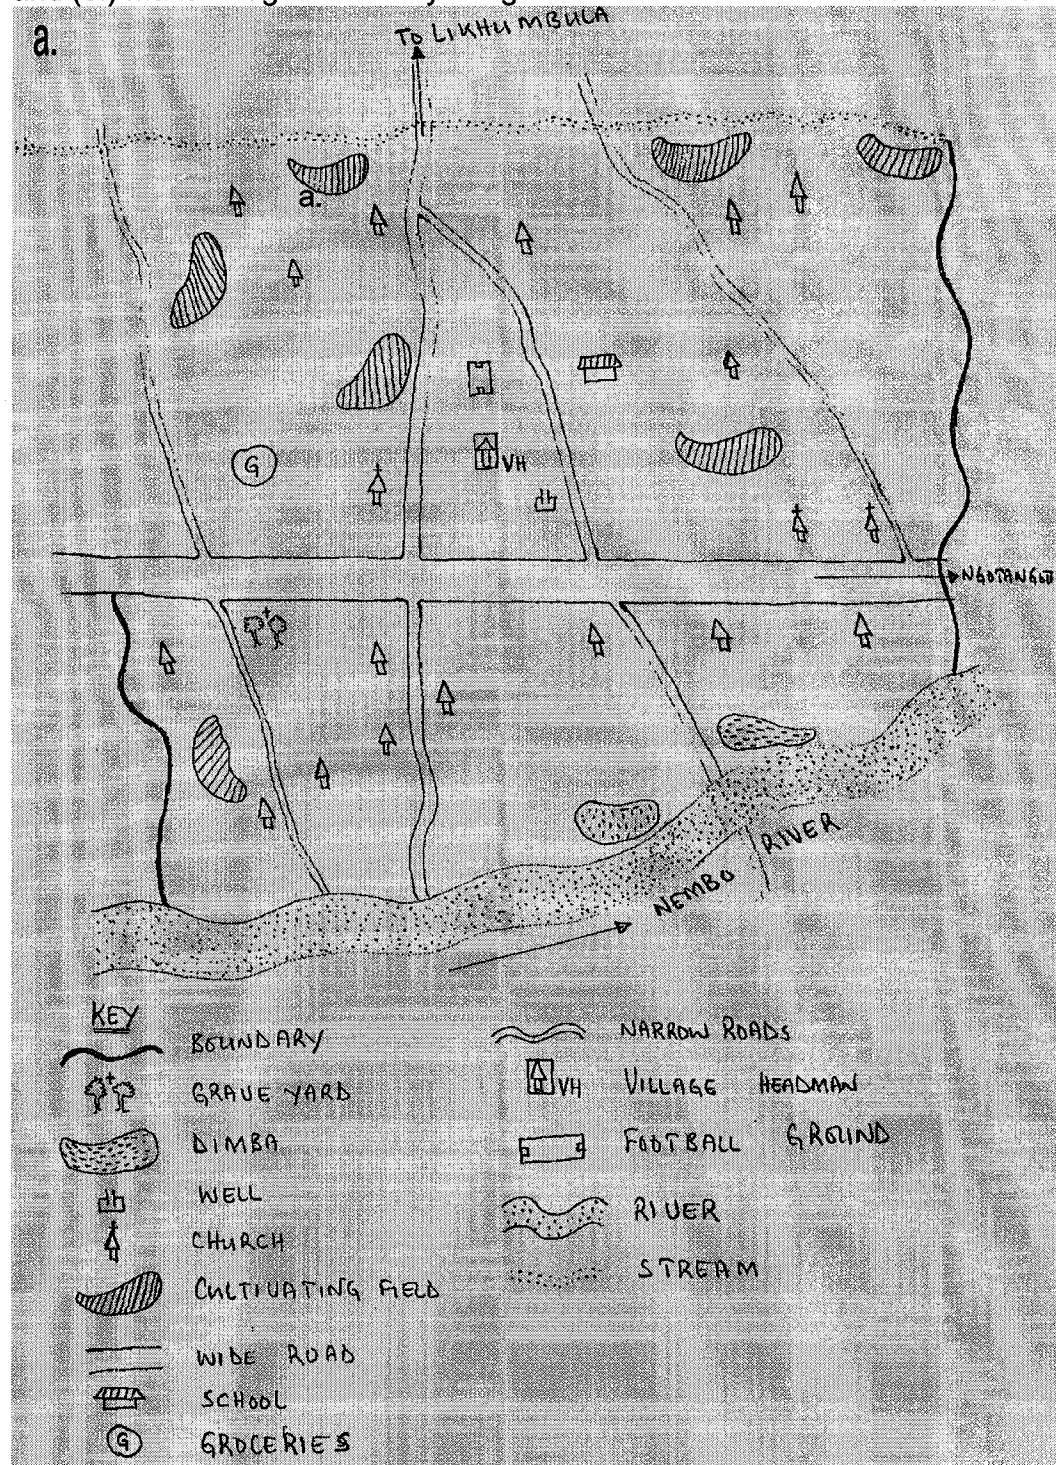 a.
TO LIKHUMBULA
a.
G
VH
NEMBO RIVER
KEY
BOUNDARY
GRAVE YARD
DIMBA
WELL
CHURCH
CULTIVATING FIELD
WIDE ROAD
SCHOOL
G GROCERIES
NARROW ROADS
VH VILLAGE HEADMAN
FOOTBALL GROUND
RIVER
STREAM